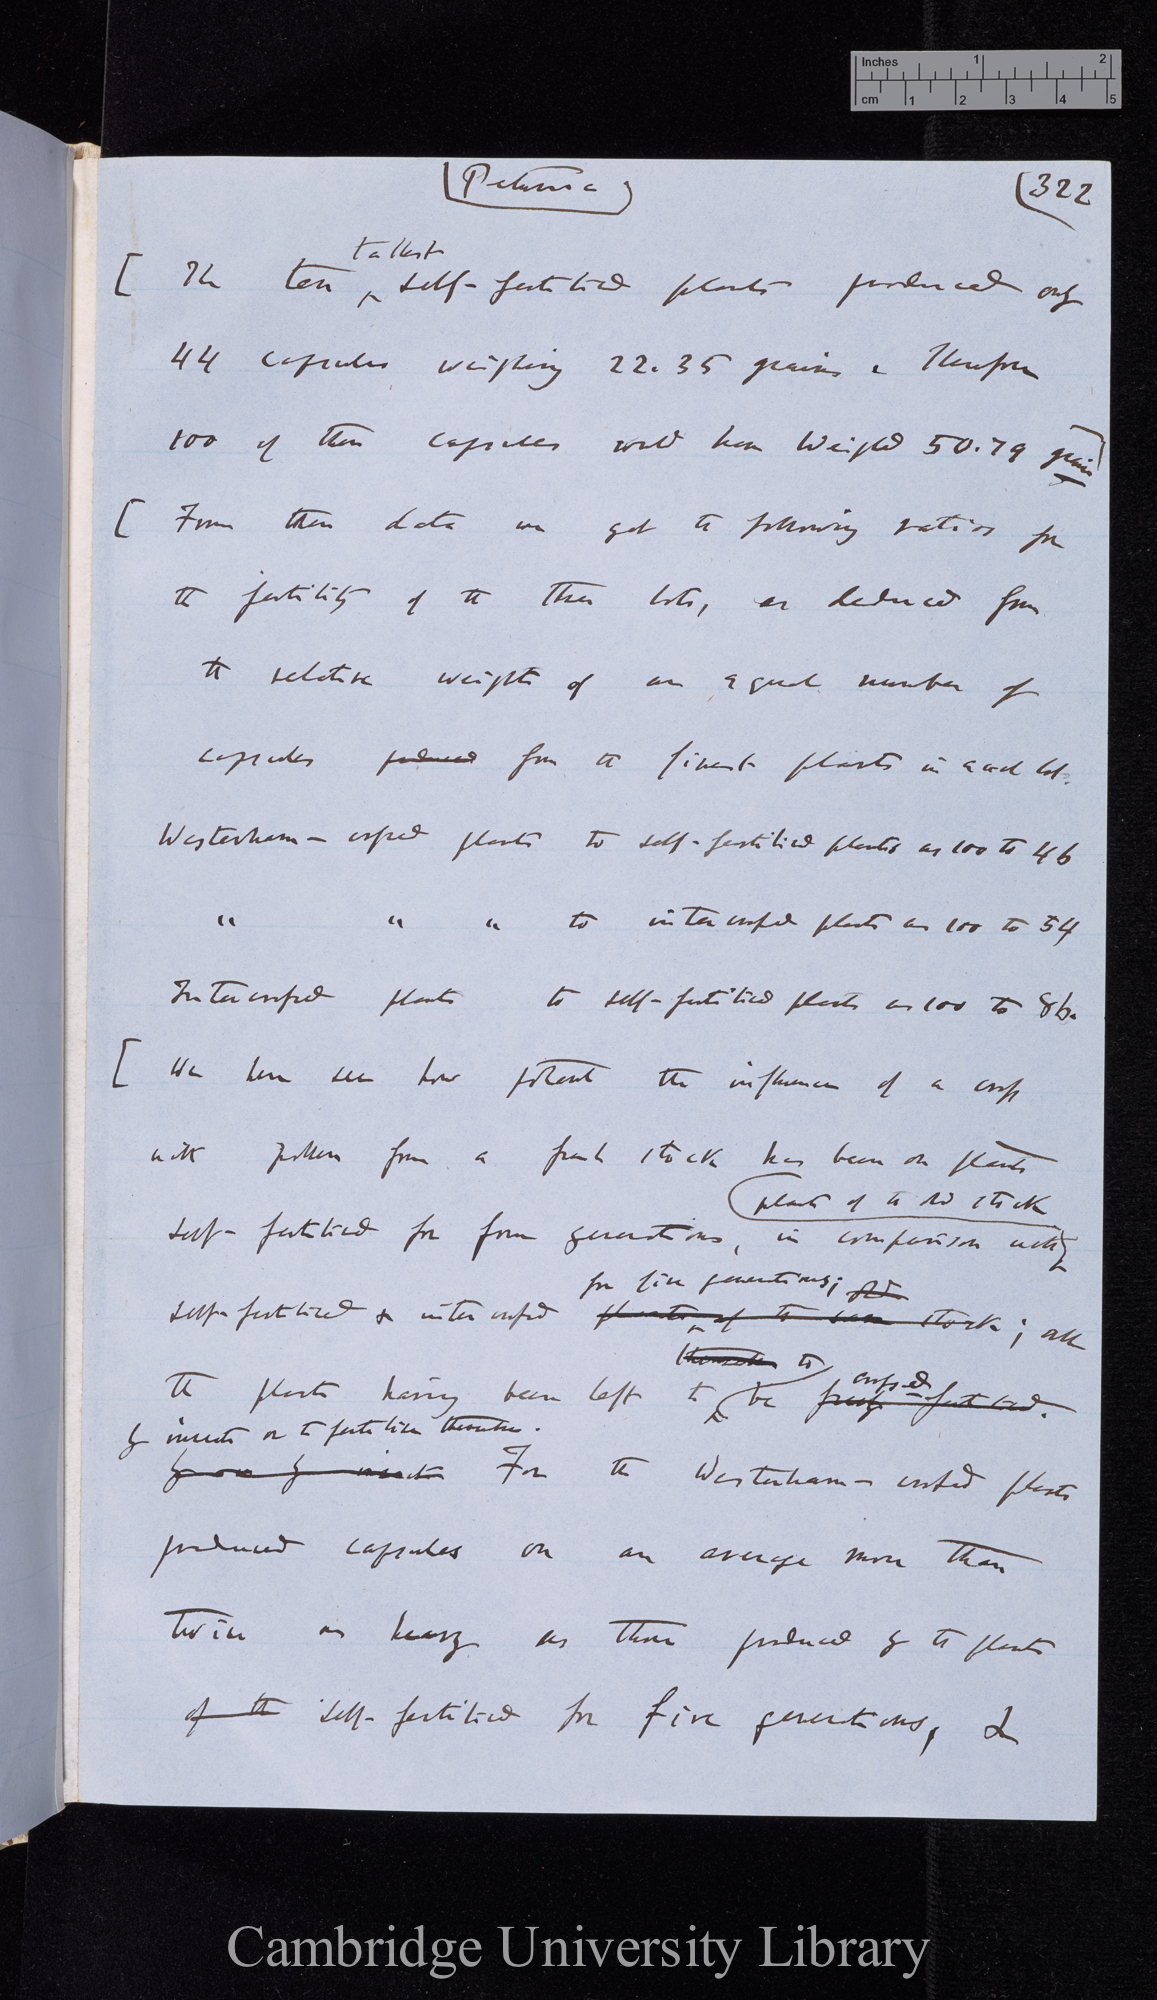 Petunia
322
[ The ten tallest self-fertilised plants produced only
44 capsules weighing 22.35 grains & therefore
100 of these capsules would have weighed 50.79 grains]
[ From these data we get the following ratios for
the fertility of the three lots, as deduced from
the relative weights of an equal number of
capsules produced from the finest plants in each lot.
Westerham-crossed plants to self-fertilised plants as 100 to 46
" " " to intercrossed plants as 100 to 54
Intercrossed plants to self-fertilised plants as 100 to 86.
[ We here see how potent the influence of a cross
with pollen from a fresh stock has been on plants
plants of the old stock
self-fertilised for four generations, in comparison with
for five generations; old
self-fertilised & intercrossed plants of the same stock; all
themselves to crossed
the plants having been left to be freely fertilised.
by insects or to fertilise themselves.
by insects For the Westerham-crossed plants
produced capsules on an average more than
twice as heavy as those produced by the plants
of the self-fertilised for five generations, &
Inches 1 2
cm 1 2 3 4 5
Cambridge University Library